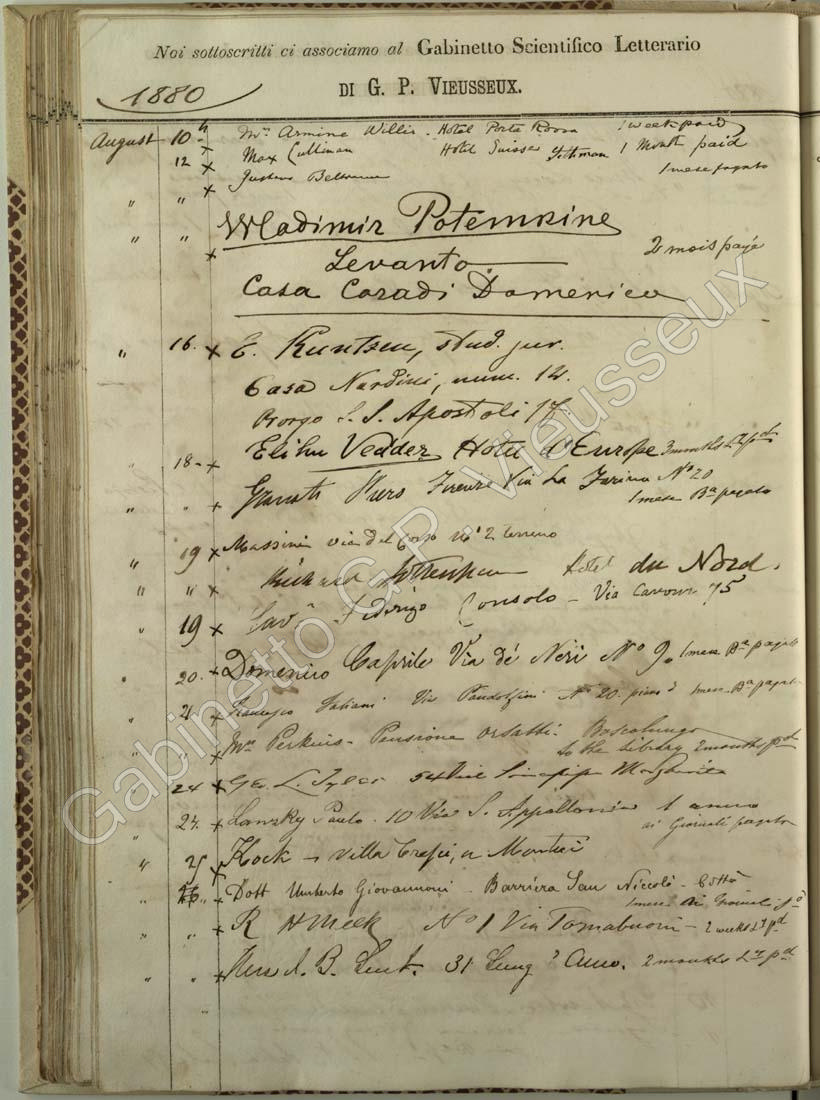 Noi sottoscritti ci associamo al Gabinetto Scientifico Letterario
DI G. P. VIEUSSEUX.
1880
August 10 x Mr. Armine Willis - Hotel Porta Rossa 1 week paid
12 x Max Cullinan Hotel Suisse 1 Month paid
" " x Gustavo 1 mese pagato
" " x Wladimir Potemkine
Levanto 2 mois payé
Casa Coradi Domenico
" 16. x E. stud. jur.
Casa Nardini, num. 12.
Borgo S. S. Apostoli 17.
" 18- x Elihu Vedder Hotel d'Europe 3 months pd
" " x Piero Firenze Via La Farina No 20
1 mese Ba pagato
" 19 x Massini via del Corso No 2 terreno
" " x Richard Hotel du Nord.
" 19 x Cav. Federigo Consolo - Via Cavour 75
" 20. x Domenico Caprile Via de' Neri No 9. 1 mese Ba pagato
" 21 x Francesco Via Pandolfini No 20. piano 1 mese Ba pagato
" " x Mrs Perkins - Pensione Orsatti - Boscolungo
to the Library 2 months pd
" 24 x Geo. L. Tyler Principessa Margherita
" 24. x Lanzky Paulo - 10 Via S. Appollonia 1 anno
ai Giornali pagato
" 25 x Kock - Villa
" " x Dott Umberto Giovannoni - Barriera San Niccolò - Città
1 mese ai Giornali
" " x R H Meek No 1 Via Tornabuoni - 2 weeks pd
" " x 31 Lung' Arno. 2 months pd
Gabinetto G.P. Vieusseux